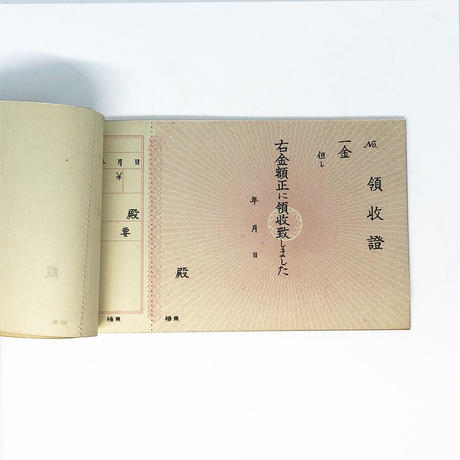 No.
領收證
一金
但し
右金額正に領收致しました
年月日
殿
月日
￥
殿
要